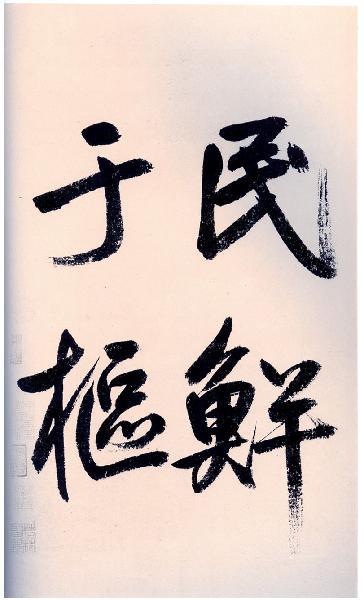 民鮮
于樞